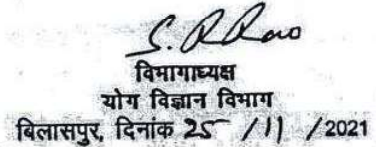 S. R Rao
विभागाध्यक्ष
योग विज्ञान विभाग
बिलासपुर, दिनांक 25 / 11 / 2021